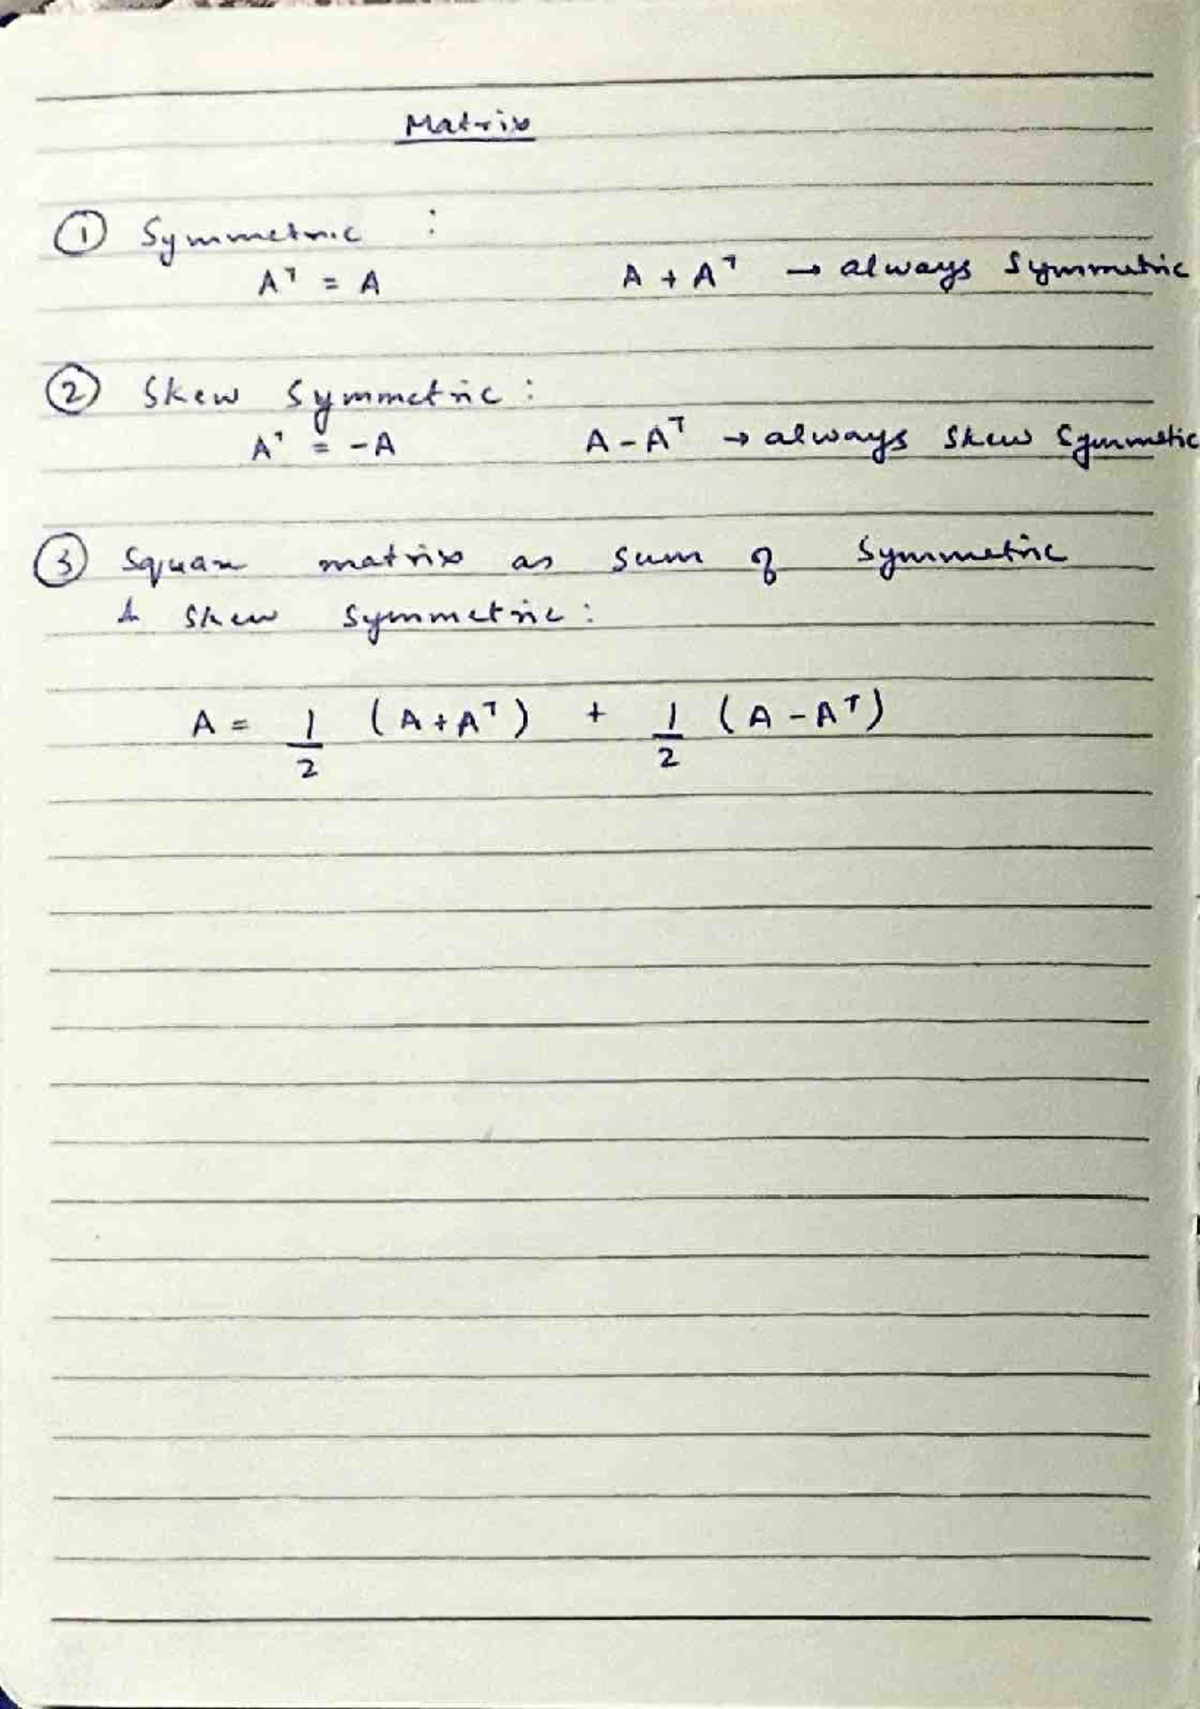 Matrix
① Symmetric :
Aᵀ = A A + Aᵀ → always Symmetric
② Skew Symmetric :
Aᵀ = -A A - Aᵀ → always Skew Symmetric
③ Square matrix as sum of Symmetric
& Skew Symmetric :
A = 1/2 (A + Aᵀ) + 1/2 (A - Aᵀ)